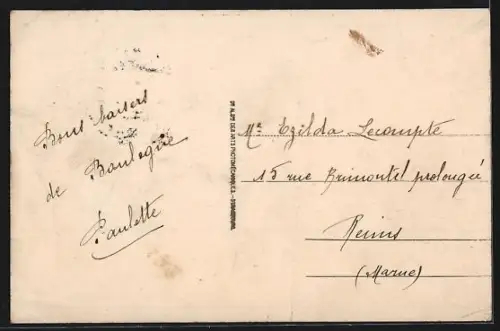 Bons baisers
de Boulogne
Paulette
Me Ezilda Lecompte
15 rue Brimontel prolongée
Reims
(Marne)